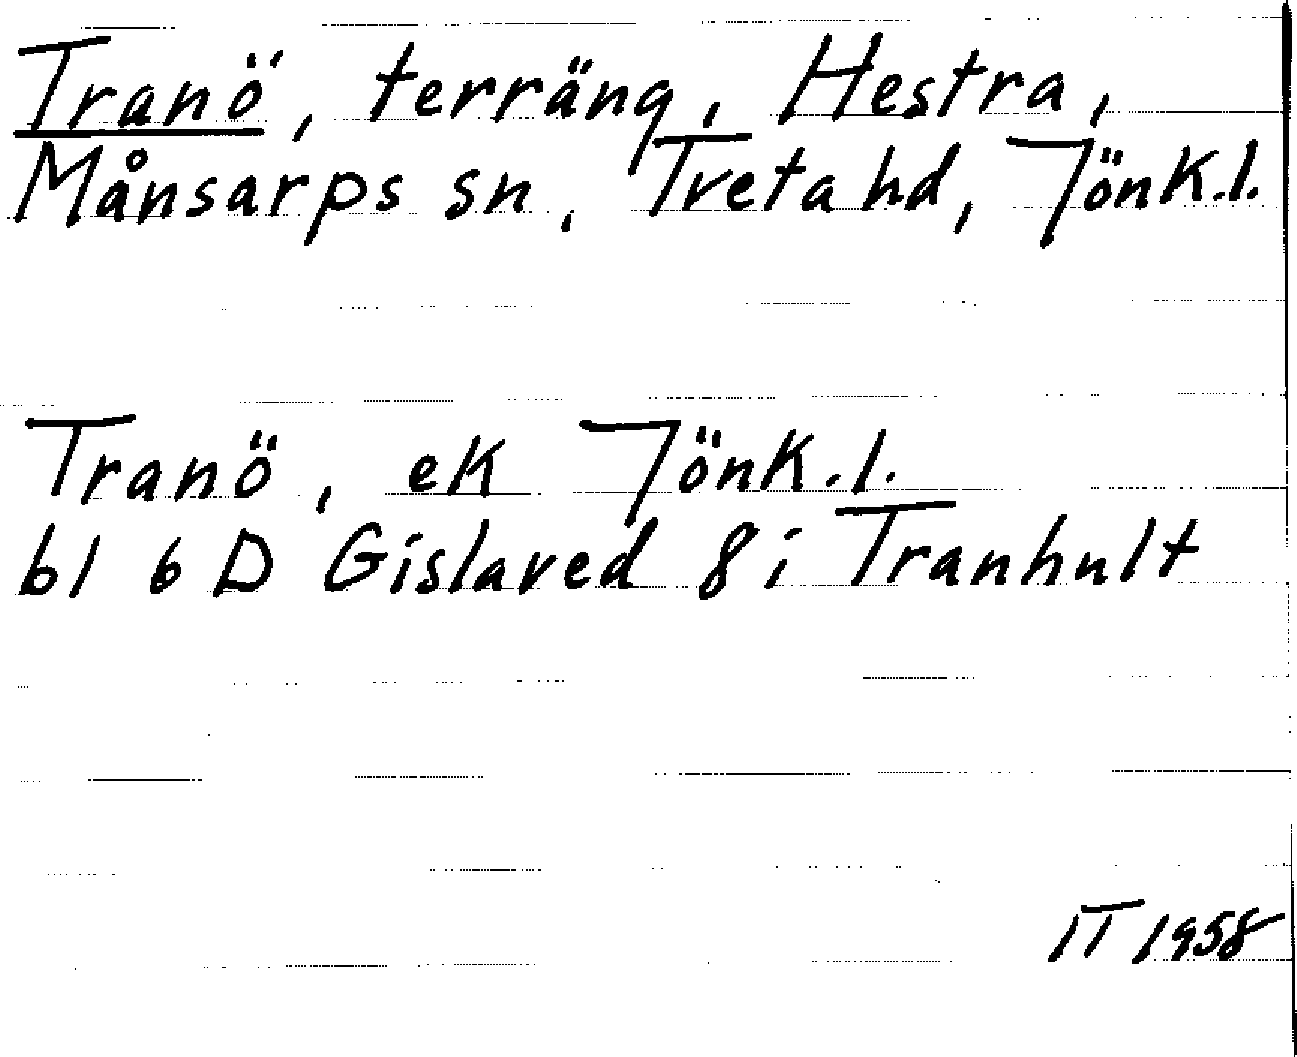 Tranö, terräng, Hestra,
Månsarps sn, Tveta hd, Jönk.l.
Tranö, ek Jönk.l.
bl 6 D Gislaved 8 i Tranhult
IT 1958